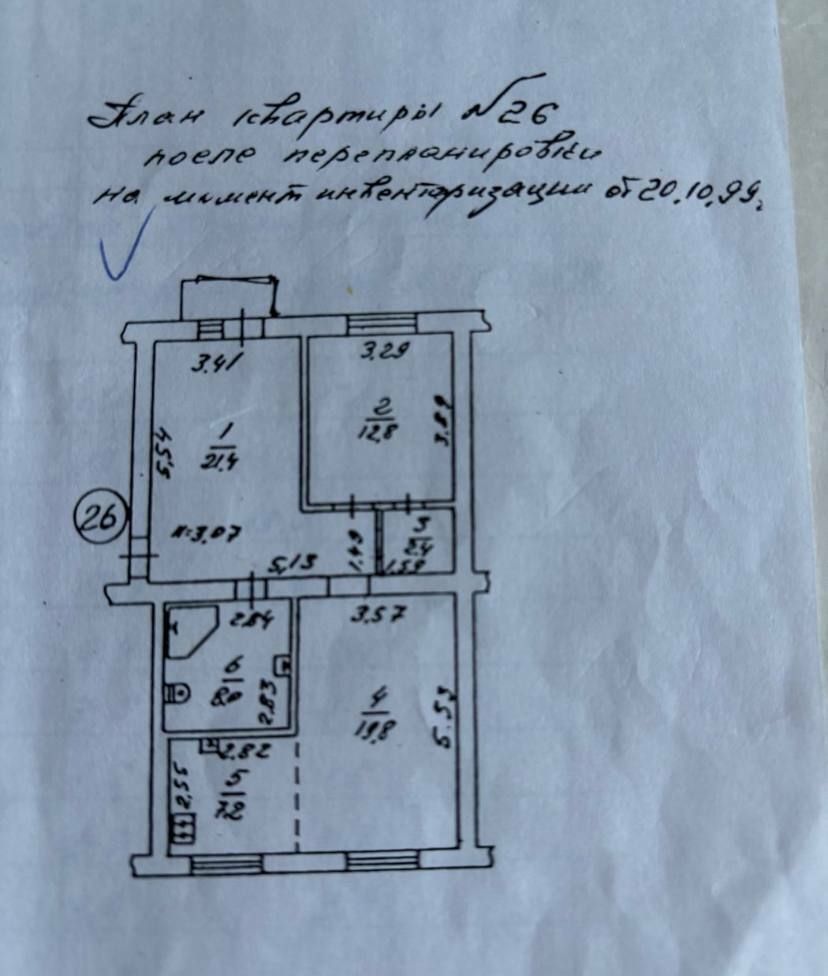 План квартиры №26
после перепланировки
на момент инвентаризации от 20.10.99г
3.41
3.29
5,54
1
21.4
2
12.8
3.89
26
h=3,07
5,13
1.49
3
2.4
1.59
2.84
3.57
6
8.0
2.83
4
19.8
5.53
2.82
2.55
5
7.2